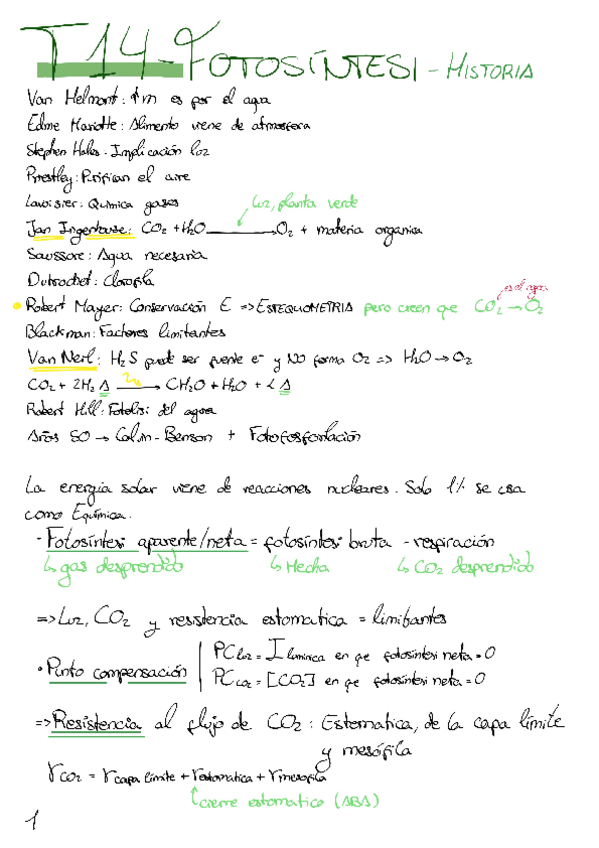 T14-FOTOSÍNTESI - HISTORIA
Van Helmont: ↑m es por el agua
Edme Mariotte: Alimento viene de atmosfera
Stephen Hales. Implicación luz
Priestley: Purifican el aire
Lavoisier: Química gases
Luz, planta verde
Jan Ingenhouse: CO₂ + H₂O → O₂ + materia organica
Saussore: Agua necesaria
Dutrochet: Clorofila
es del agua
Robert Mayer: Conservación E => ESTEQUIOMETRIA pero creen que CO₂ → O₂
Blackman: Factores limitantes
Van Neil: H₂S puede ser fuente e⁻ y NO forma O₂ => H₂O → O₂
CO₂ + 2H₂A → CH₂O + H₂O + 2A
Robert Hill: Fotolisi del agua
Años 50 → Calvin-Benson + Fotofosforilación
La energía solar viene de reacciones nucleares. Solo 1% se usa
como Equímica.
· Fotosíntesi aparente/neta = fotosíntesi bruta - respiración
↳ gas desprendido ↳ Hecha ↳ CO₂ desprendido
=> Luz, CO₂ y resistencia estomatica = limitantes
PCluz = I luminica en qe fotosíntesi neta = 0
· Punto compensación
PCCO₂ = [CO₂] en qe fotosíntesi neta = 0
=> Resistencia al flujo de CO₂: Estomatica, de la capa límite
y mesófila
rCO₂ = rcapa límite + restomatica + rmesofila
cierre estomatico (ABA)
1